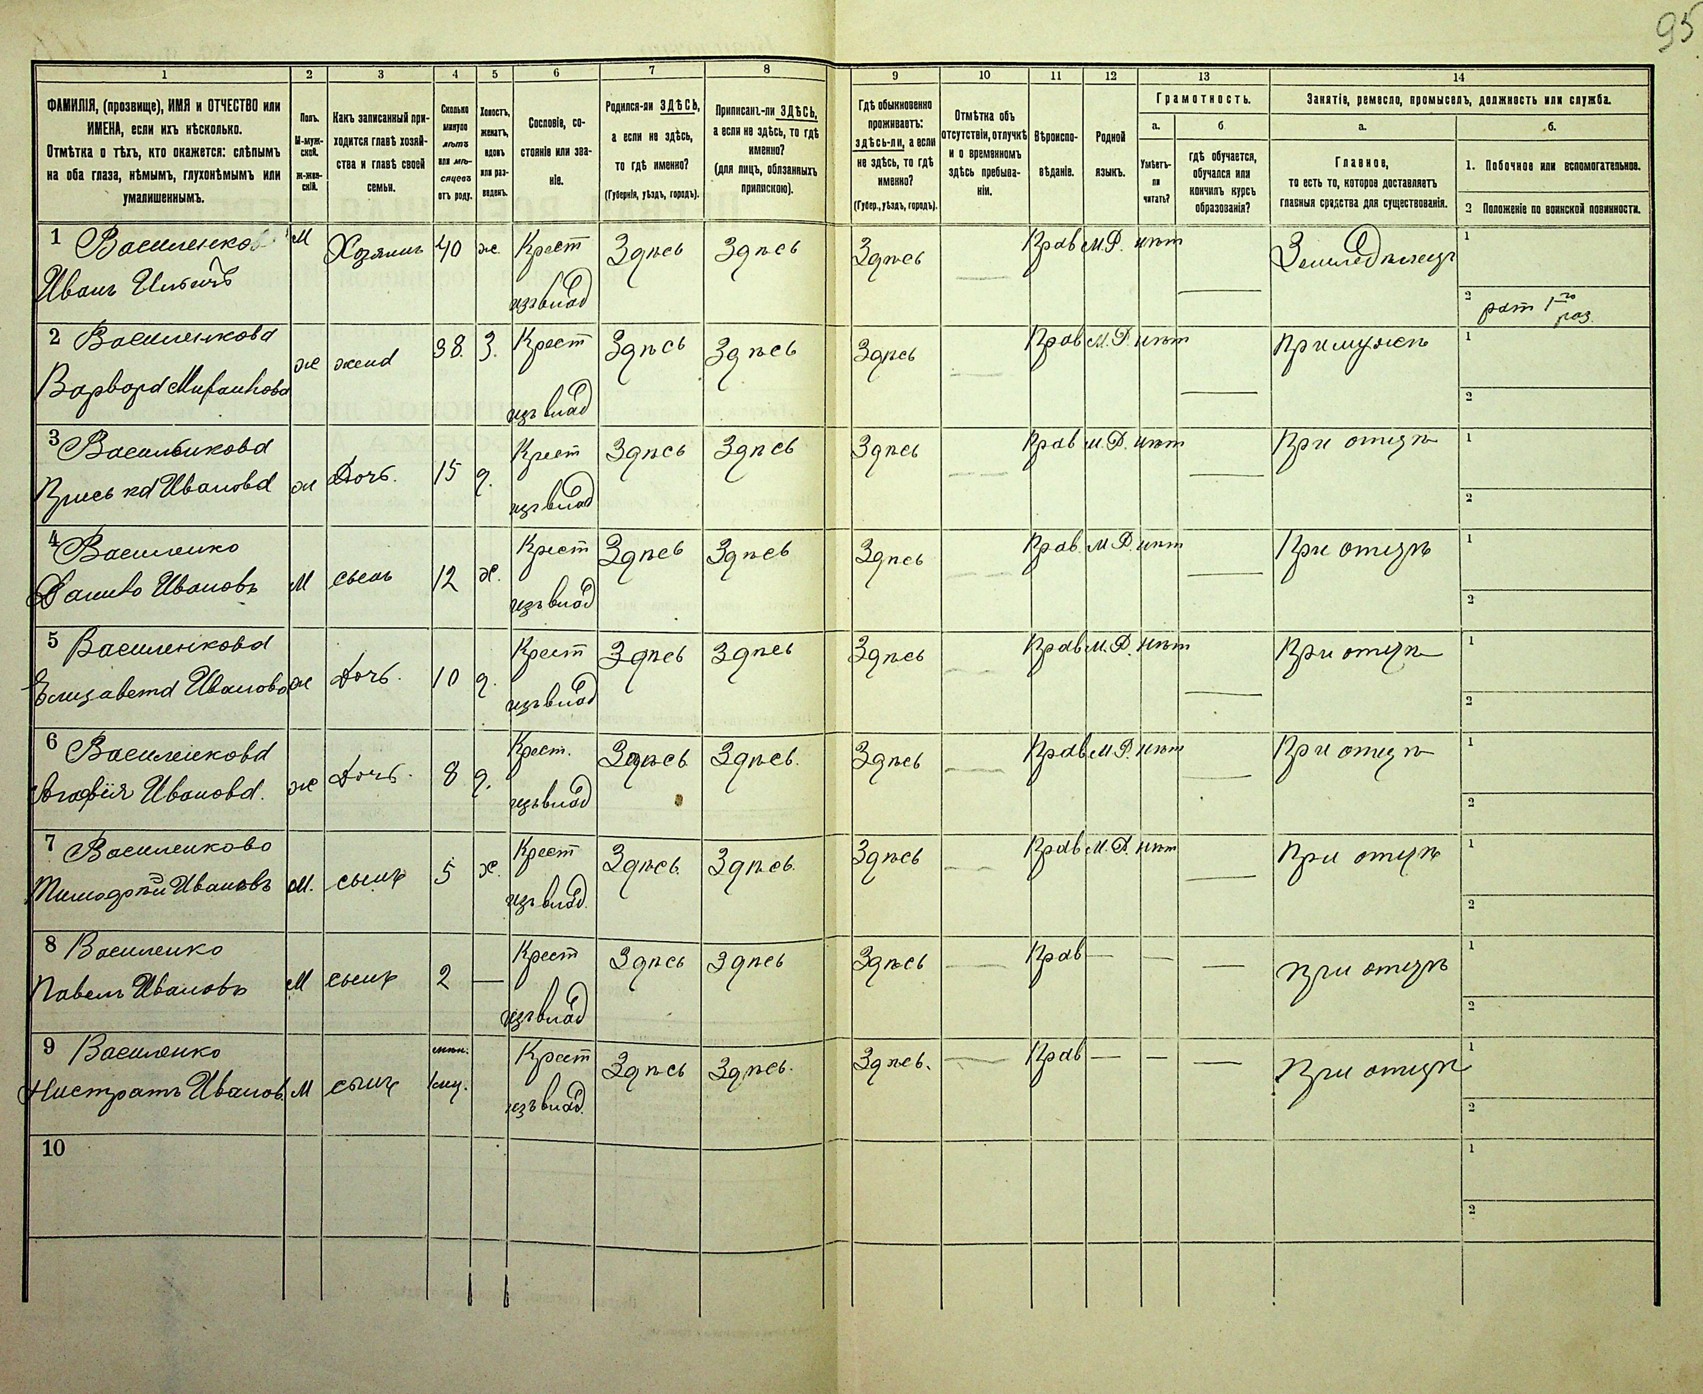 95
1 2 3 4 5 6 7 8 9 10 11 12 13 14
ФАМИЛІЯ, (прозвище), ИМЯ и ОТЧЕСТВО или
ИМЕНА, если ихъ нѣсколько.
Отмѣтка о тѣхъ, кто окажется: слѣпымъ
на оба глаза, нѣмымъ, глухонѣмымъ или
умалишеннымъ.
Полъ.
М-муж-
ской.
Ж-жен-
скій.
Какъ записанный при-
ходится главѣ хозяй-
ства и главѣ своей
семьи.
Сколько
минуло
лѣтъ
или мѣ-
сяцевъ
отъ роду.
Холостъ,
женатъ,
вдовъ
или раз-
веденъ.
Сословіе, со-
стояніе или зва-
ніе.
Родился-ли ЗДѢСЬ,
а если не здѣсь,
то гдѣ именно?
(Губернія, уѣздъ, городъ).
Приписанъ-ли ЗДѢСЬ,
а если не здѣсь, то гдѣ
именно?
(для лицъ, обязанныхъ
припискою).
Гдѣ обыкновенно
проживаетъ:
здѣсь-ли, а если
не здѣсь, то гдѣ
именно?
(Губер., уѣздъ, городъ).
Отмѣтка объ
отсутствіи, отлучкѣ
и о временномъ
здѣсь пребыва-
ніи.
Вѣроиспо-
вѣданіе.
Родной
языкъ.
Грамотность.
а. б
Умѣетъ-
ли
читать?
гдѣ обучается,
обучался или
кончилъ курсъ
образованія?
Занятіе, ремесло, промыселъ, должность или служба.
а. б.
Главное,
то есть то, которое доставляетъ
главныя средства для существованія.
1. Побочное или вспомогательное.
2 Положеніе по воинской повинности.
1 Василенково М Хозяинъ 40 ж. Крест Здѣсь Здѣсь Здѣсь Прав М.Р. нѣт Земледѣлецъ 1
Иванъ Ильичъ изъ влад 2 рат 1го раз.
2 Василенкова ж жена 38. З. Крест Здѣсь Здѣсь Здѣсь Прав М.Р. нѣт При мужѣ 1
Варвара изъ влад 2
3 Василькова ж Дочь. 15 д. Крест Здѣсь Здѣсь Здѣсь Прав М.Р. нѣт При отцѣ 1
Ивановa изъ влад 2
4 Василенко М сынъ 12 х. Крест Здѣсь Здѣсь Здѣсь Прав. М.Р. нѣт При отцѣ 1
Данило Ивановъ изъ влад 2
5 Василенкова ж Дочь. 10 д. Крест Здѣсь Здѣсь Здѣсь Прав М.Р. нѣт При отцѣ 1
Елизавета Иванова изъ влад 2
6 Василенкова ж Дочь. 8 д. Крест. Здѣсь Здѣсь. Здѣсь Прав М.Р. нѣт При отцѣ 1
Агафія Иванова. изъ влад 2
7 Василенково М. сынъ 5 х. Крест Здѣсь. Здѣсь. Здѣсь Прав М.Р. нѣт При отцѣ 1
Тимофѣй Ивановъ изъ влад. 2
8 Василенко М сынъ 2 — Крест Здѣсь Здѣсь Здѣсь Прав — — — При отцѣ 1
Павелъ Ивановъ изъ влад 2
9 Василенко М сынъ 1 мц. Крест Здѣсь Здѣсь. Здѣсь. Прав — — — При отцѣ 1
Ивановъ изъ влад. 2
10 1
2